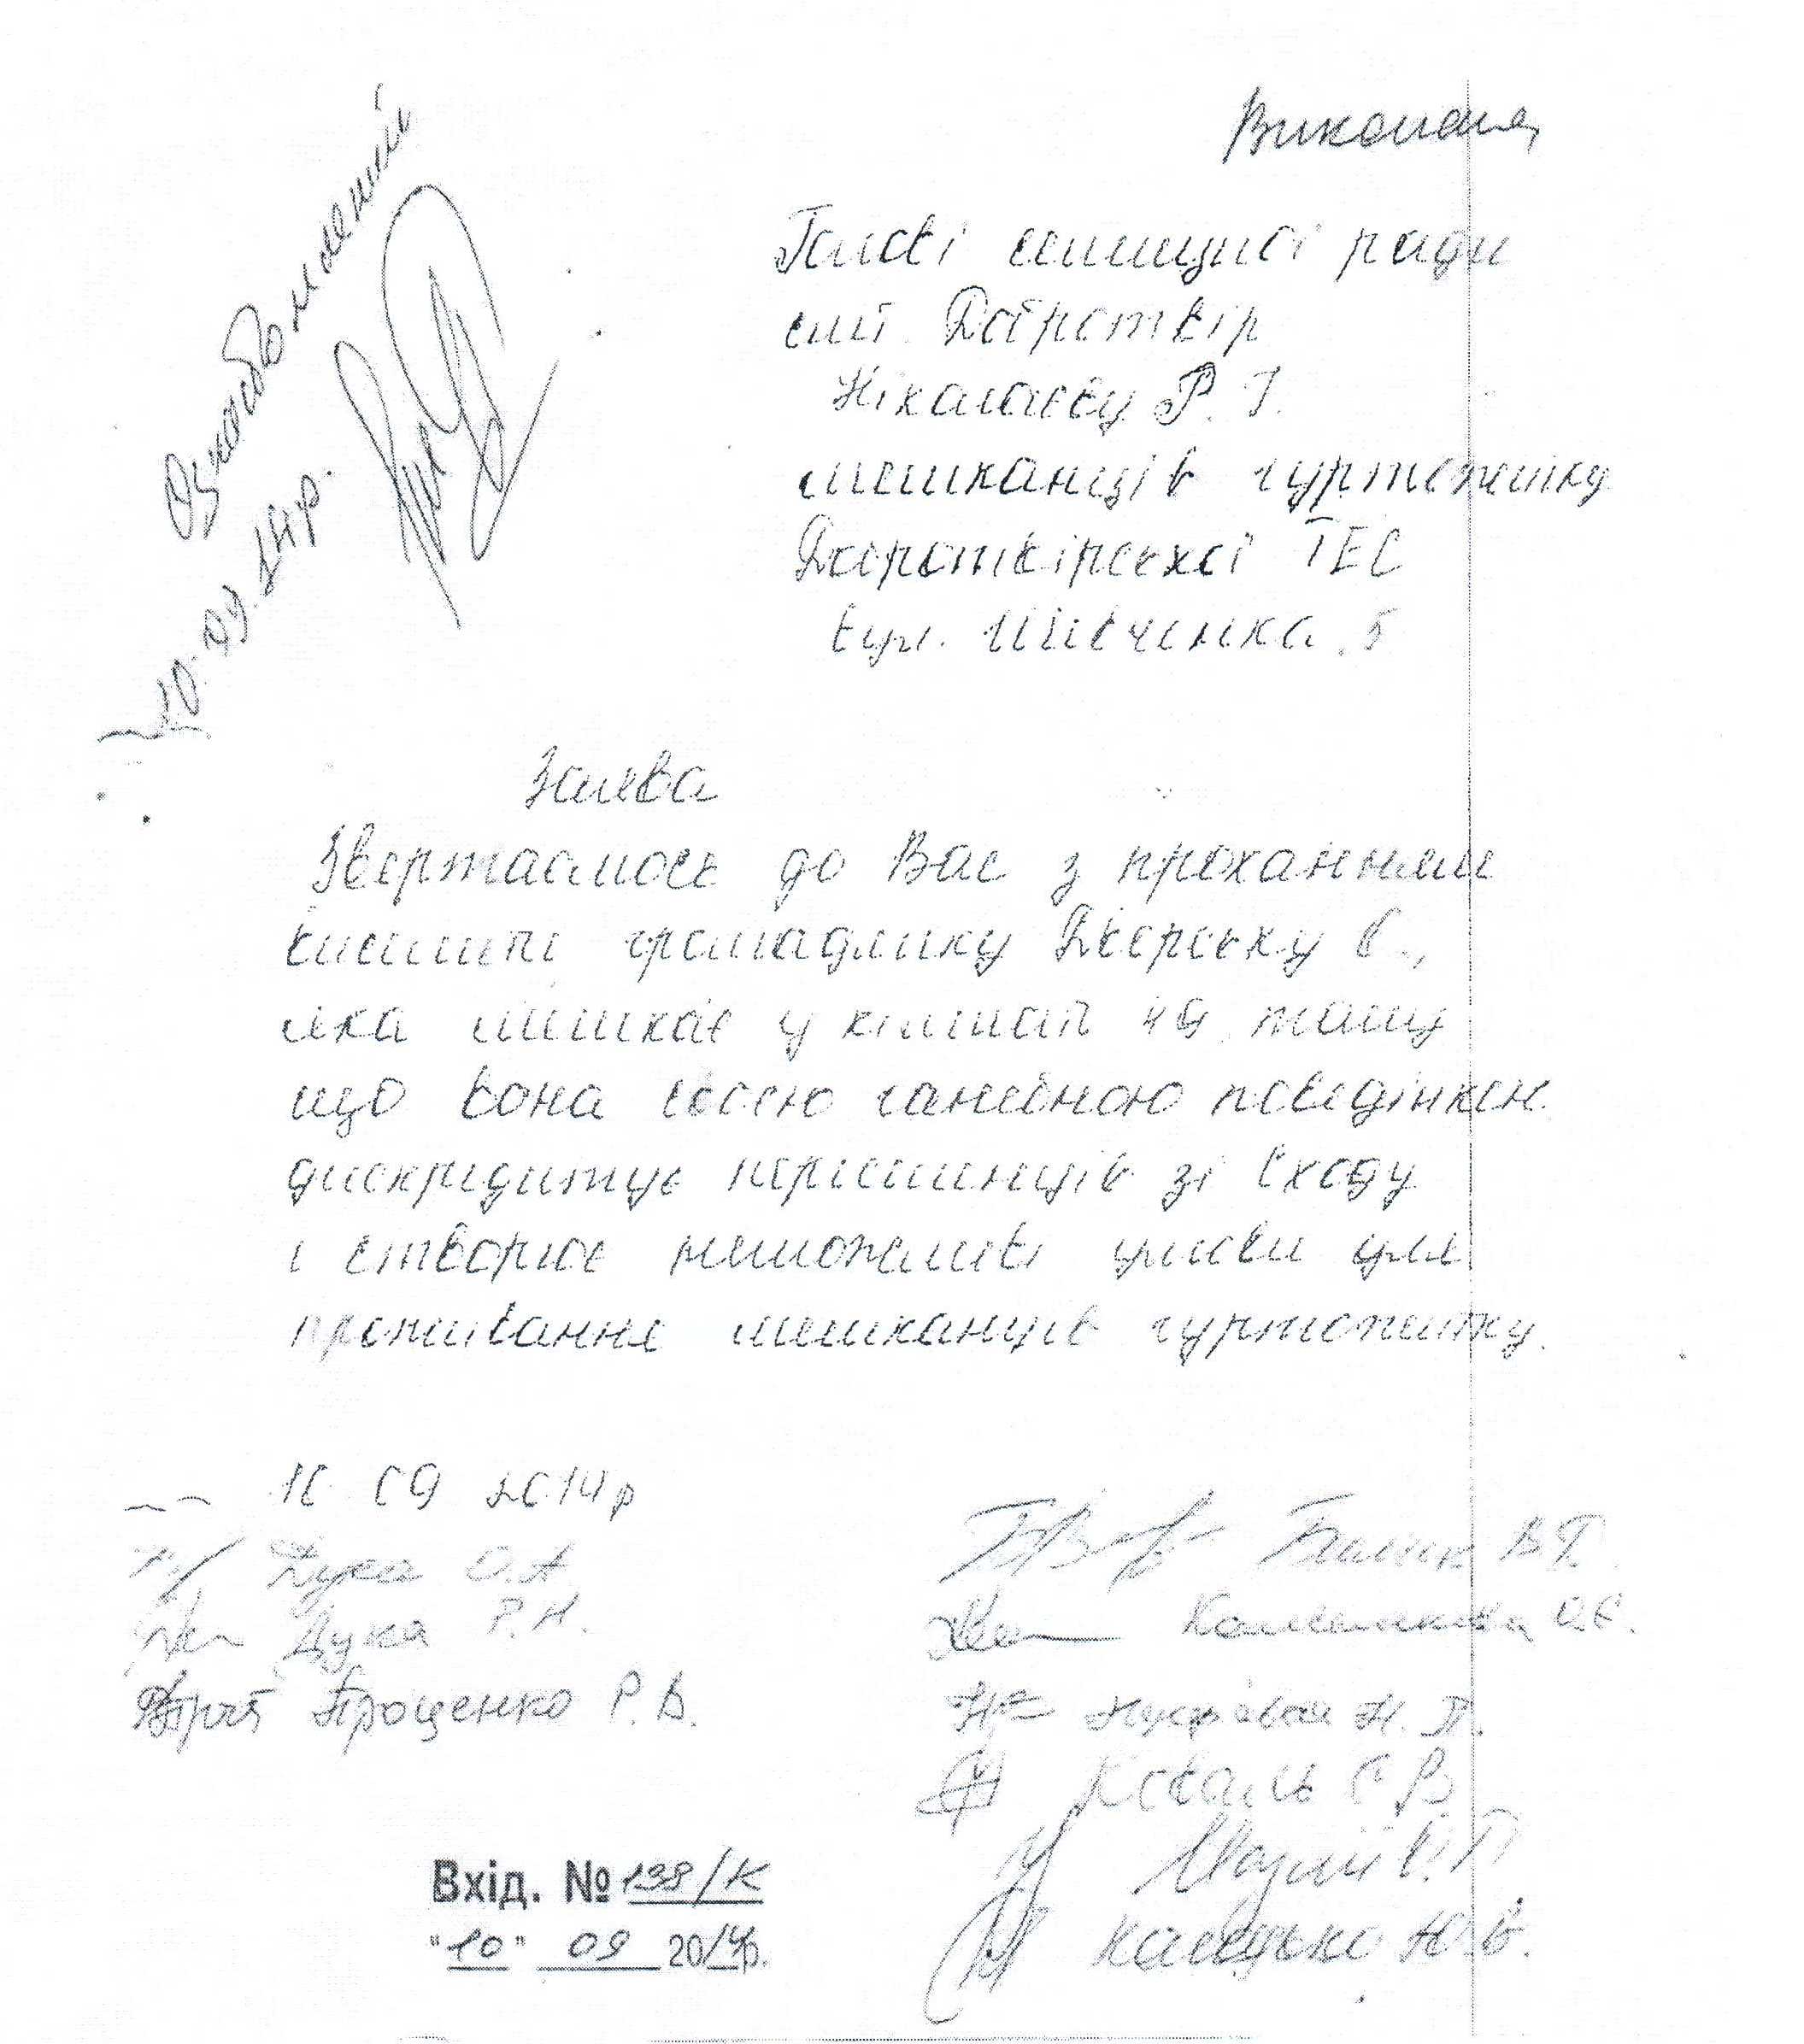 Виконана
Ознайомлений
10.09.14р.
Голові селищної ради
смт. Добротвір
Ніколаєву Р. І.
мешканців гуртожитку
Добротвірської ТЕС
вул. Шевченка 5
Заява
Звертаємось до Вас з проханням
виселити громадянку Дворську В.,
яка мешкає у кімнаті 49, тому
що вона своєю ганебною поведінкою
дискредитує переселенців зі Сходу
і створює неможливі умови для
проживання мешканців гуртожитку.
10 09 2014р
Дука О.А
Дука Р.Н.
Проценко Р.В.
В.Г.
О.Є.
Н. П.
Коваль С В
Ю.В.
Вхід. № 138/К
"10" 09 2014р.